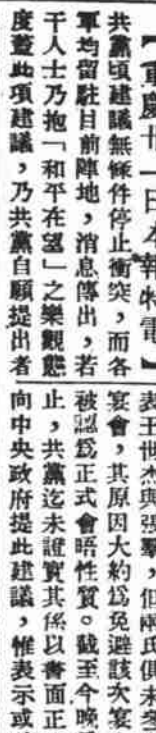 【重慶十一日本報特電】
共黨頃建議無條件停止衝突，而各
軍均留駐目前陣地，消息傳出，若
干人士乃抱「和平在望」之樂觀態
度蓋此項建議，乃共黨自願提出者
表王世杰與張羣，但兩氏俱未參
宴會，其原因大約爲免避該次宴
被認爲正式會晤性質。截至今晚
止，共黨迄未證實其係以書面正
向中央政府提此建議，惟表示或